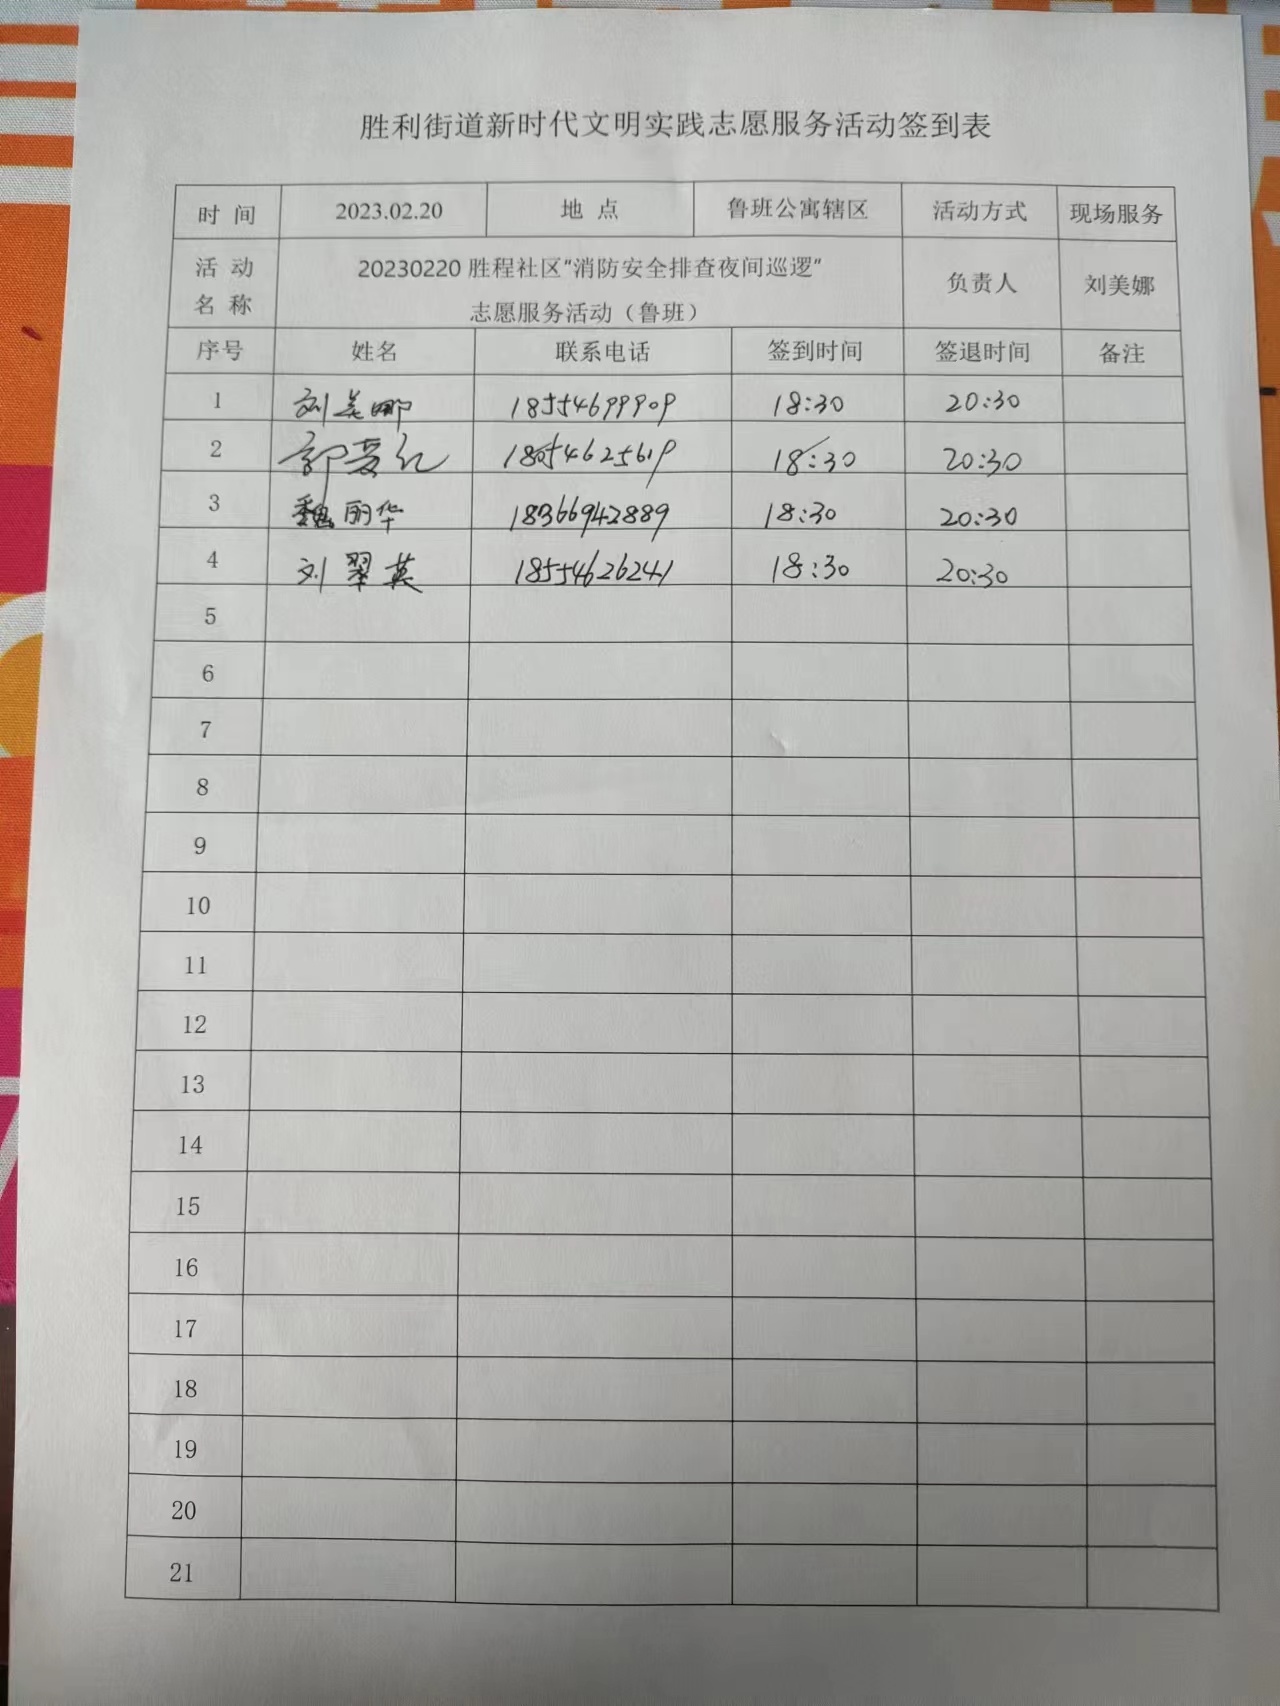 胜利街道新时代文明实践志愿服务活动签到表
时 间 2023.02.20 地 点 鲁班公寓辖区 活动方式 现场服务
活 动 名 称 20230220 胜程社区“消防安全排查夜间巡逻” 负责人 刘美娜
志愿服务活动（鲁班）
序号 姓名 联系电话 签到时间 签退时间 备注
1 刘美娜 18554699909 18:30 20:30
2 郭爱红 18:30 20:30
3 魏丽华 18366942889 18:30 20:30
4 刘翠英 18554626241 18:30 20:30
5
6
7
8
9
10
11
12
13
14
15
16
17
18
19
20
21